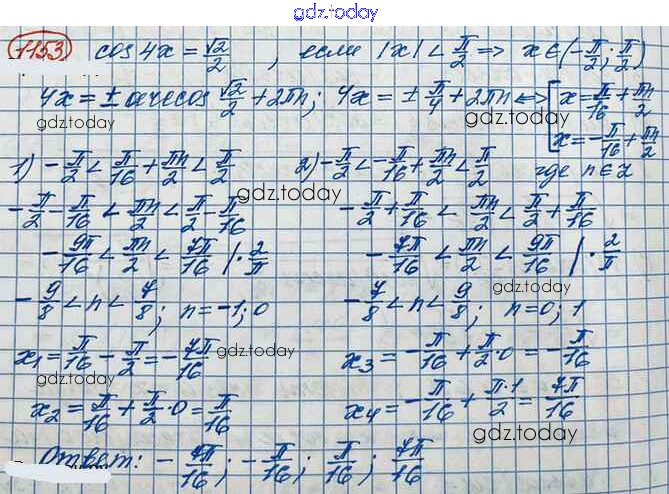 gdz.today
1153 cos4x = √2/2, если |x| < π/2 => x ∈ (-π/2; π/2)
4x = ± arccos √2/2 + 2πn; 4x = ± π/4 + 2πn <=> [x = π/16 + πn/2
gdz.today
gdz.today
x = -π/16 + πn/2
1) -π/2 < π/16 + πn/2 < π/2 2) -π/2 < -π/16 + πn/2 < π/2 где n ∈ Z
gdz.today
-π/2 - π/16 < πn/2 < π/2 - π/16 -π/2 + π/16 < πn/2 < π/2 + π/16
-9π/16 < πn/2 < 7π/16 | · 2/π -7π/16 < πn/2 < 9π/16 | · 2/π
gdz.today
-9/8 < n < 7/8; n = -1; 0 -7/8 < n < 9/8; n = 0; 1
x₁ = π/16 - π/2 = -7π/16 x₃ = -π/16 + π/2 · 0 = -π/16
gdz.today
gdz.today
x₂ = π/16 + π/2 · 0 = π/16 x₄ = -π/16 + π·1/2 = 7π/16
gdz.today
Ответ: -7π/16; -π/16; π/16; 7π/16